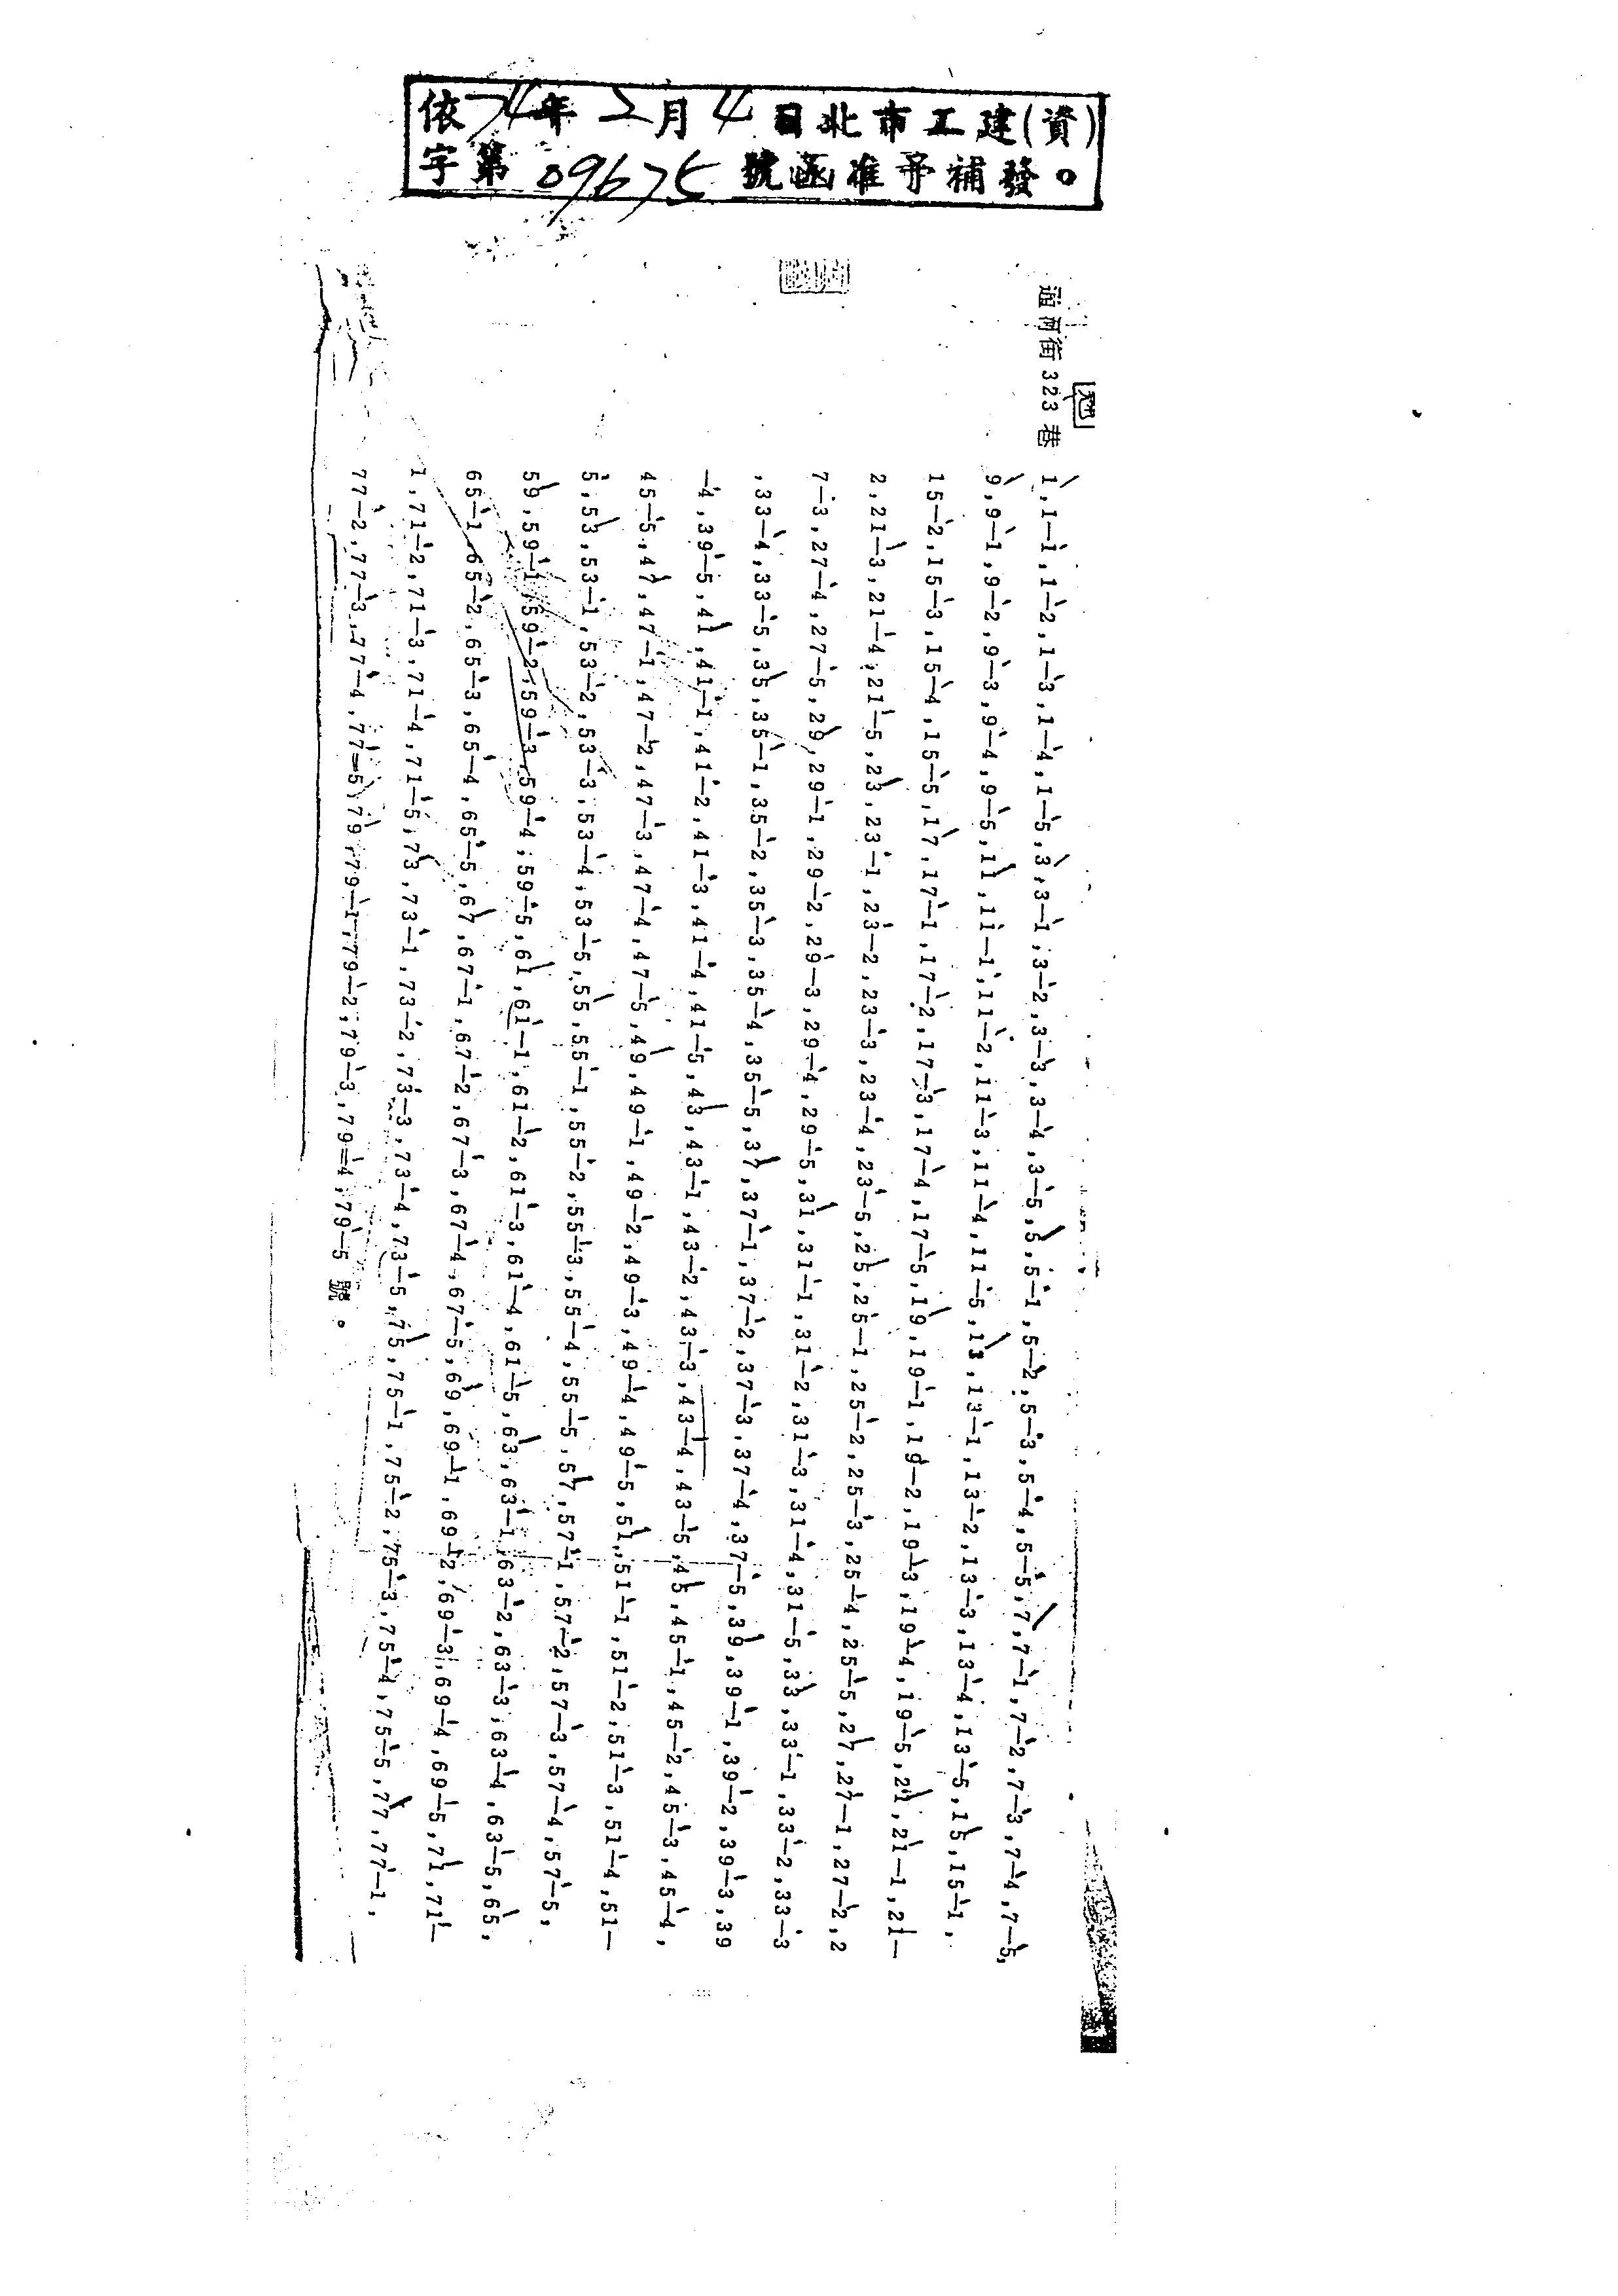 依74年2月4日北市工建(資)
字第09675號函准予補發。
通河街323巷
1,1-1,1-2,1-3,1-4,1-5,3,3-1,3-2,3-3,3-4,3-5,5,5-1,5-2,5-3,5-4,5-5,7,7-1,7-2,7-3,7-4,7-5,
9,9-1,9-2,9-3,9-4,9-5,11,11-1,11-2,11-3,11-4,11-5,13,13-1,13-2,13-3,13-4,13-5,15,15-1,
15-2,15-3,15-4,15-5,17,17-1,17-2,17-3,17-4,17-5,19,19-1,19-2,19-3,19-4,19-5,21,21-1,21-
2,21-3,21-4,21-5,23,23-1,23-2,23-3,23-4,23-5,25,25-1,25-2,25-3,25-4,25-5,27,27-1,27-2,2
7-3,27-4,27-5,29,29-1,29-2,29-3,29-4,29-5,31,31-1,31-2,31-3,31-4,31-5,33,33-1,33-2,33-3
,33-4,33-5,35,35-1,35-2,35-3,35-4,35-5,37,37-1,37-2,37-3,37-4,37-5,39,39-1,39-2,39-3,39
-4,39-5,41,41-1,41-2,41-3,41-4,41-5,43,43-1,43-2,43-3,43-4,43-5,45,45-1,45-2,45-3,45-4,
45-5,47,47-1,47-2,47-3,47-4,47-5,49,49-1,49-2,49-3,49-4,49-5,51,51-1,51-2,51-3,51-4,51-
5,53,53-1,53-2,53-3,53-4,53-5,55,55-1,55-2,55-3,55-4,55-5,57,57-1,57-2,57-3,57-4,57-5,
59,59-1,59-2,59-3,59-4,59-5,61,61-1,61-2,61-3,61-4,61-5,63,63-1,63-2,63-3,63-4,63-5,65,
65-1,65-2,65-3,65-4,65-5,67,67-1,67-2,67-3,67-4,67-5,69,69-1,69-2,69-3,69-4,69-5,71,71-
1,71-2,71-3,71-4,71-5,73,73-1,73-2,73-3,73-4,73-5,75,75-1,75-2,75-3,75-4,75-5,77,77-1,
77-2,77-3,77-4,77-5,79,79-1,79-2,79-3,79-4,79-5號。